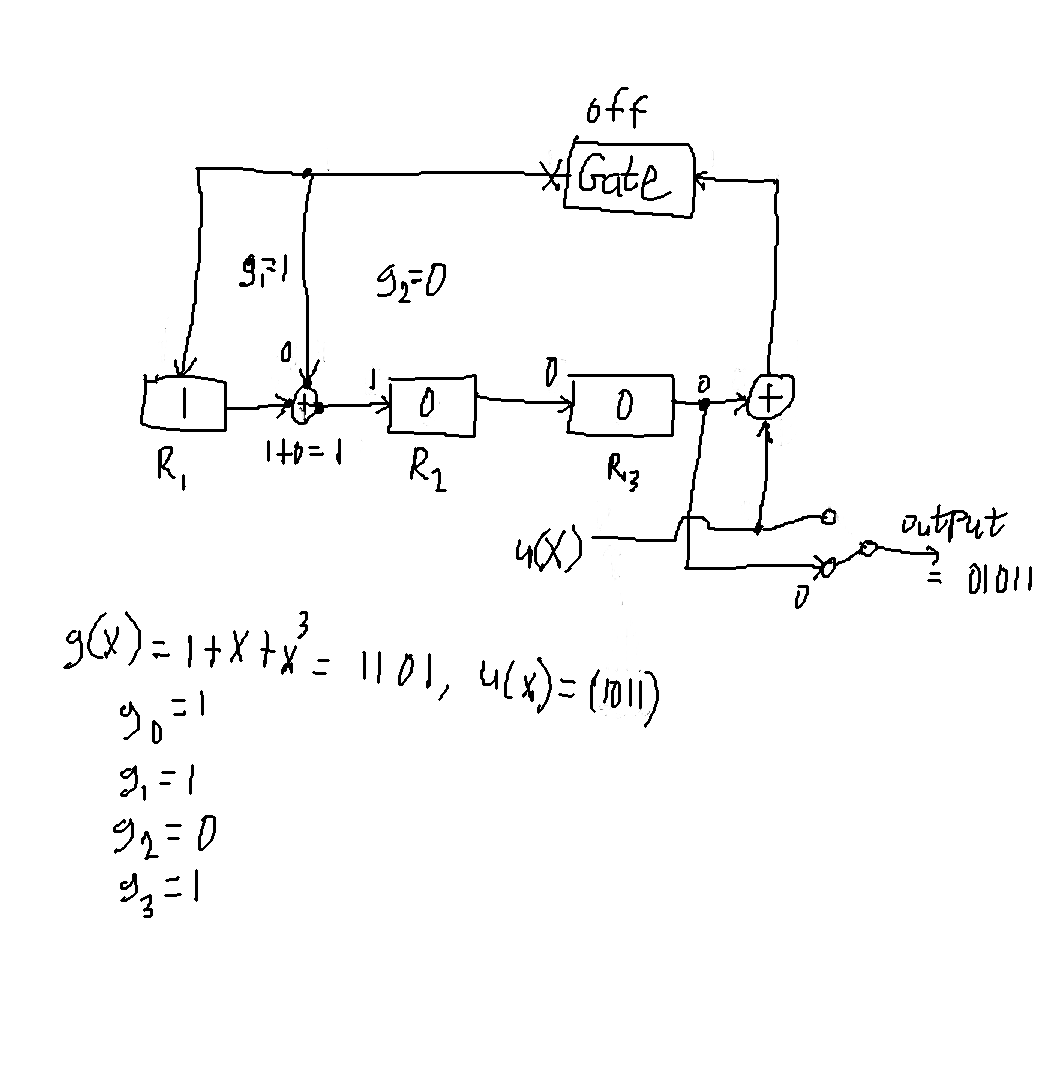 off
Gate
g₁=1
g₂=0
0
1
0
0
1
0
0
1+0=1
R₁
R₂
R₃
u(X)
output
0
= 01011
g(X)=1+X+X³= 1101, u(X)=(1011)
g₀=1
g₁=1
g₂=0
g₃=1